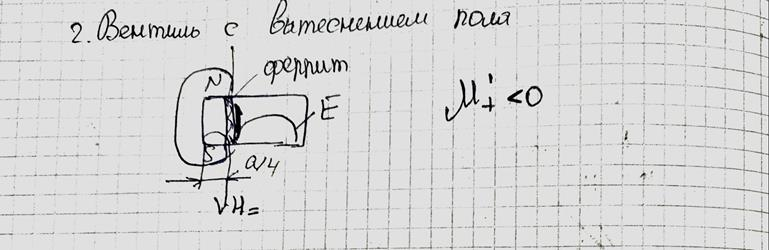 2. Вентиль с вытеснением поля
феррит
N
E
μ'₊ <0
S
a/4
H=